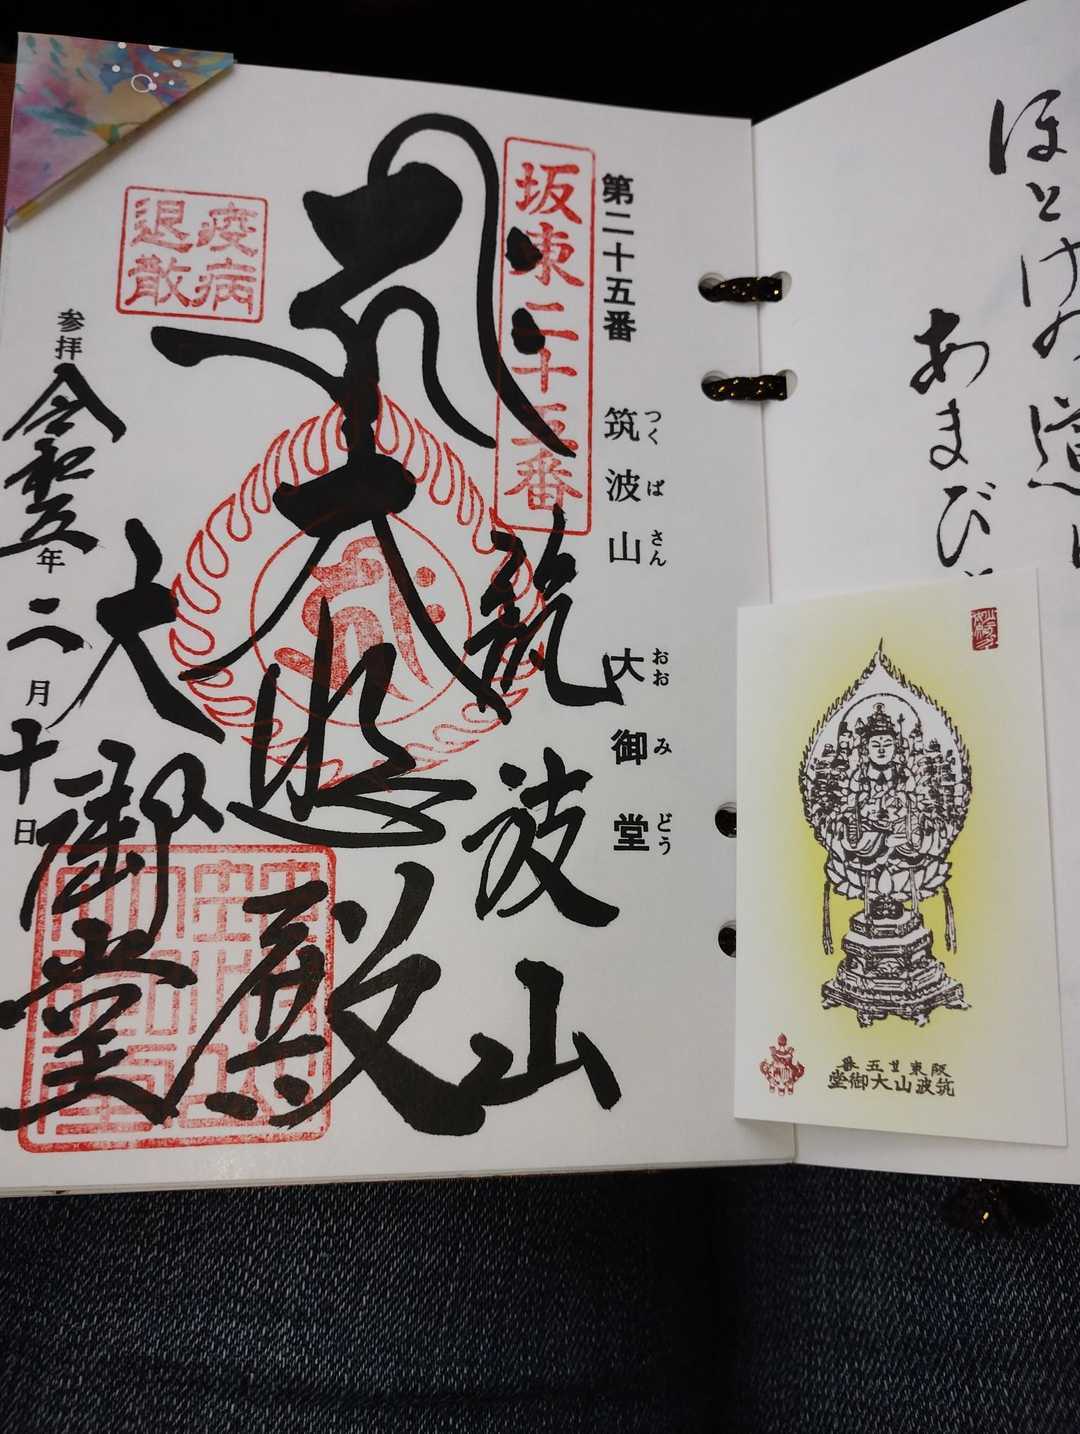 ほとけの
あまびと
第二十五番　筑波山　大御堂
つくばさん　おおみどう
坂東二十五番
筑波山
大悲殿
大御堂
疫病
退散
参拝
令和五年二月十日
坂東廿五番
筑波山大御堂